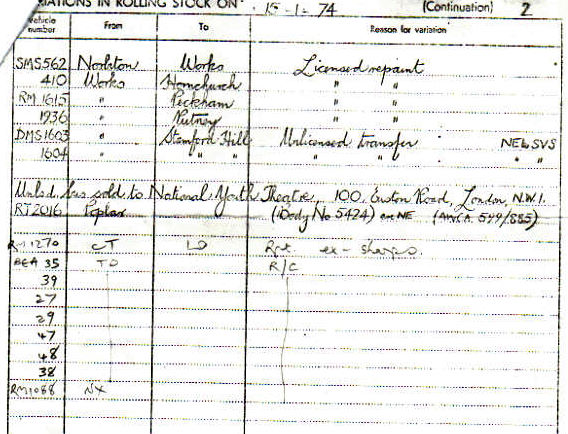 VARIATIONS IN ROLLING STOCK ON 15-1-74 (Continuation) 2
Vehicle number From To Reason for variation
SMS562 Norbiton Works Licensed repaint
410 Works Hornchurch " "
RM 1615 " Peckham " "
1936 " Putney " "
DMS1603 " Stamford Hill Unlicensed transfer NEW SVS
1604 " " " " " " "
Unlsd. bus sold to National Youth Theatre, 100. Euston Road, London, N.W.1.
RT2016 Poplar (Body No 5424) on NE (AWCA. 549/885)
RM1270 CT LD Rpt. ex-
BEA 35 TD R/C
39
27
29
47
48
38
RM1088 NX